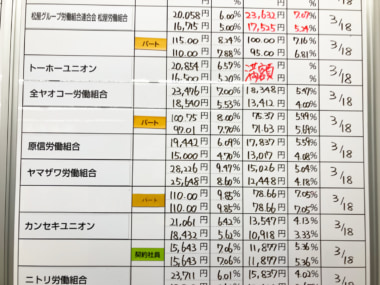 松屋グループ労働組合連合会 松屋労働組合 20,058円 6.00% 23,632円 7.07% 3/18
16,715円 5.00% 17,525円 5.24%
パート 115.00円 8.24% 100.00円 7.16% 3/18
110.00円 7.88% 95.00円 6.81%
トーホーユニオン 20,854円 6.57% 満額 円 % 3/18
16,500円 5.20% 円 %
全ヤオコー労働組合 23,476円 7.00% 18,348円 5.47% 3/18
18,540円 5.53% 13,412円 4.00%
パート 100.75円 8.00% 75.37円 5.99% 3/18
97.01円 7.70% 71.63円 5.69%
原信労働組合 19,442円 6.09% 17,837円 5.59% 3/18
15,000円 4.70% 13,017円 4.08%
ヤマザワ労働組合 28,226円 9.47% 15,026円 5.04% 3/18
25,648円 8.60% 12,448円 4.18%
パート 110.00円 9.85% 78.66円 7.05% 3/18
110.00円 9.85% 78.66円 7.05%
カンセキユニオン 21,061円 6.42% 13,547円 4.13% 3/18
18,432円 5.62% 10,918円 3.33%
契約社員 15,643円 7.06% 11,877円 5.36% 3/18
15,643円 7.06% 11,877円 5.36%
ニトリ労働組合 23,711円 6.01% 15,837円 4.02% 3/18